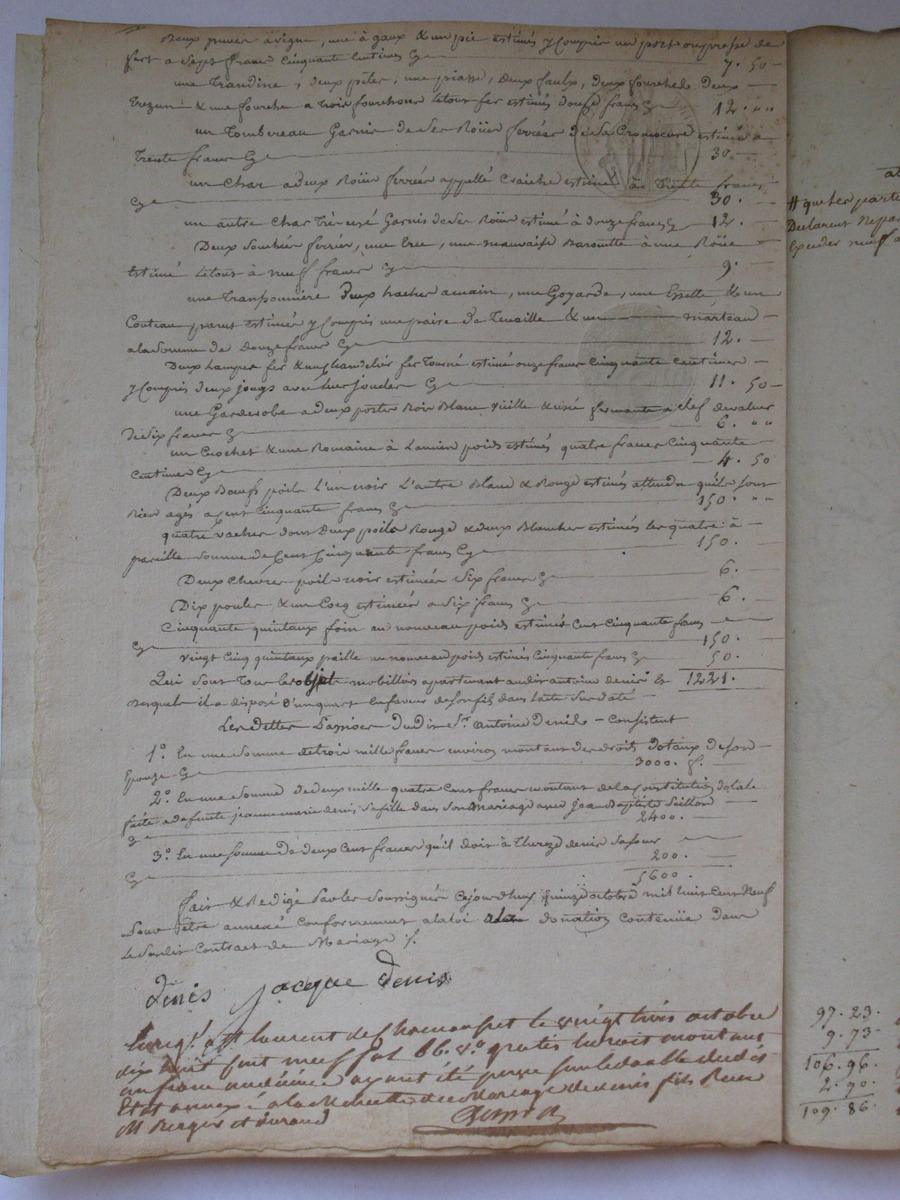 Deux yvuier à vigne, une à gaux & un pic estimés y Compris un port ou presse de
fert a Sept franc Cinquante Centimes Cy — 7. 50
une Trandine, Deux peles, une piasse, Deux faulx, deux fourche de Deux
Trezun & une fourche a trois fourchons le tout fer estimés douze francs Cy 12. " "
un Tombereau Garnis de Ser Roües ferrées estimé a
Trente francs Cy — 30.
un Char a deux Roües ferrées appellé Craiche estimé à Trente francs
Cy — 30.
un autre Char Garnis de Ser Roües estimé à douze francs Cy 12.
Deux Soulier ferrés, une , une mauvaise Barouette à une Roüe
estimé le tout à neuf francs Cy — 9.
une Transponnière Deux hacher a main, une Goyarde, une Essette, & un
Couteau estimés y Compris une paire de Tenaille & un marteau
a la Somme de Douze francs Cy — 12.
Deux Lampes fer & un Chandelier fer Tourné estimé onze francs Cinquante Centimes
y Compris deux jougs avec leur joucles Cy — 11. 50
une Garderobe a deux portes Bois Blanc vieille & usé fermante a Clef de valeur
de Six francs Cy 6. " "
un Crochet & une Romaine à Lancien poids estimés quatre francs Cinquante
Centimes Cy — 4. 50
Deux Bœufs poils L'un noir L'autre Blanc & Rouge estimés attendu qu'ils sont
Bien agés a Cent Cinquante francs Cy 150. " "
quatre vaches dont Deux poils Rouge & deux Blanches estimés les quatre à
pareille Somme de Cent Cinquante francs Cy — 150.
Deux Chevres poils noir estimées Six francs Cy — 6.
Dix poules & un Cocq estimées a Six francs Cy — 6.
Cinquante quintaux foin au nouveau poids estimés Cent Cinquante francs
Cy — 150.
vingt Cinq quintaux paille au nouveau poids estimés Cinquante francs Cy 50.
Qui Sont Tous les objets mobiliers apartenant audit antoine denis & 1221.
desquels il a disposé d'un quart En faveur de son fils dans l'acte Sus daté
Les Dettes Passives Dudit Sr. Antoine Denis — Consistent
1°. En une Somme de trois mille francs environ montant des droits Dotaux de Son
Epouse Cy — 3000. f.
2°. En une Somme de deux mille quatre Cent francs montant de la Constitution dotale
faite a defunte jeanne marie denis Sa fille dans Son Mariage avec Jean Baptiste
Cy — 2400.
3°. En une Somme De deux Cent francs qu'il doit à Thereze denis Sa Sœur
Cy — 200.
5600.
Fait & Redigé Par les Soussignés Cejourdhuy quinze octobre mil huit Cent Neuf
Pour Etre annexé Conformement a la loi a la donation Contenüe Dans
Le Susdit Contrat de Mariage ./.
Denis Jacque Denis
Enreg.t a St laurent de Chamousset le vingt trois octobre
dix huit cent neuf fol. 66. v.° gratis le droit montant
un franc un décime ayant été perçu sur le double du dit
Etat annexé a la Minutte du Mariage de denis fils Reçu
M Berger et durand
a
# que les parte
Declarent Ne pa
Exceder neuf
97. 23.
9. 73.
106. 96.
2. 90.
109. 86.